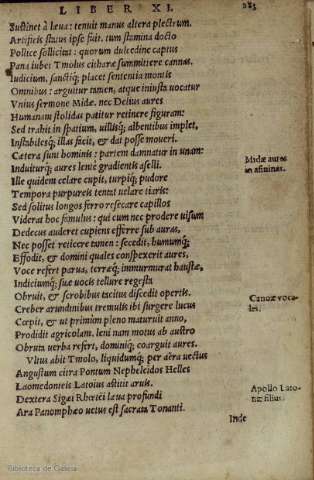 LIBER XI. 283
Sustinet à laeua: tenuit manus altera plectrum.
Artificis status ipse fuit. tum stamina docto
Pollice sollicitat: quorum dulcedine captus
Pana iubet Tmolus citharæ summittere cannas.
Iudicium, sanctiq́; placet sententia montis
Omnibus: arguitur tamen, atque iniusta uocatur
Vnius sermone Midæ. nec Delius aures
Humanam stolidas patitur retinere figuram:
Sed trahit in spatium, uillisq́; albentibus implet,
Instabilesq́; illas facit, & dat posse moueri.
Cætera sunt hominis: partem damnatur in unam: Midæ aures
Induiturq́; aures lentè gradientis aselli. in asininas.
Ille quidem celare cupit, turpiq́; pudore
Tempora purpureis tentat uelare tiaris:
Sed solitus longos ferro resecare capillos
Viderat hoc famulus: qui cum nec prodere uisum
Dedecus auderet cupiens efferre sub auras,
Nec posset reticere tamen: secedit, humumq́;
Effodit, & domini quales conspexerit aures,
Voce refert parua, terræq́; immurmurat haustæ,
Indiciumq́; suæ uocis tellure regesta
Obruit, & scrobibus tacitus discedit opertis. Cannæ voca-
Creber arundinibus tremulis ibi surgere lucus les.
Cœpit, & ut primùm pleno maturuit anno,
Prodidit agricolam. leni nam motus ab austro
Obruta uerba refert, dominiq́; coarguit aures.
Vltus abit Tmolo, liquidumq́; per aëra uectus
Angustum citra Pontum Nepheleidos Helles
Laomedonteis Latoius astitit aruis. Apollo Lato-
Dextera Sigæi Rhœtei læua profundi næ filius.
Ara Panomphæo uetus est sacrata Tonanti.
Inde
Biblioteca de Galicia